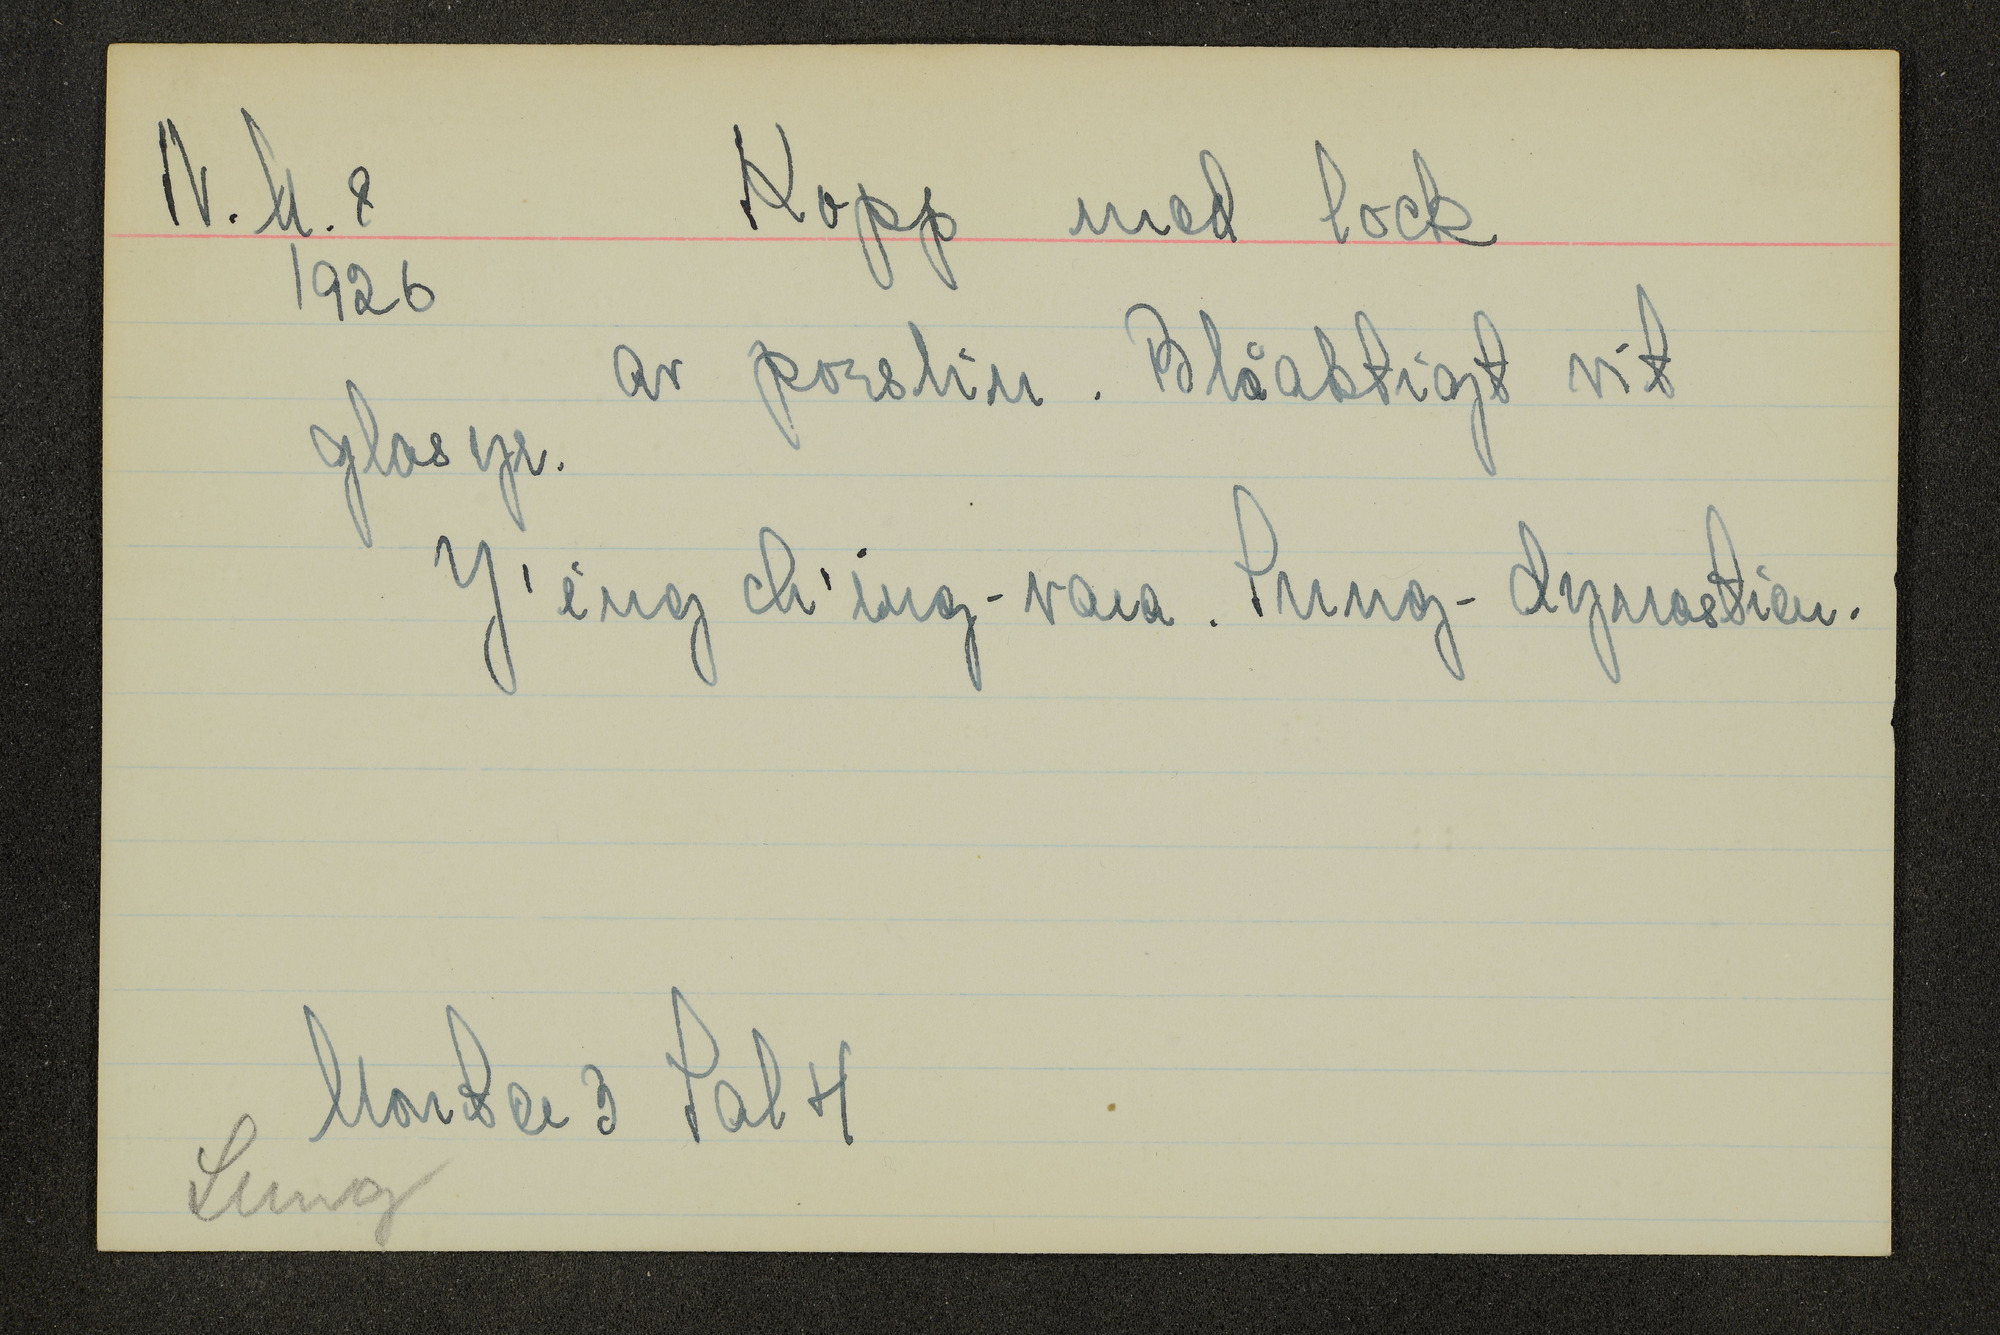 N.M. 8 Kopp med lock
1926
av porslin. Blåaktigt vit
glasyr.
Y'ing ch'ing-vara. Sung-dynastien.
Monter 3 Sal H
Sung